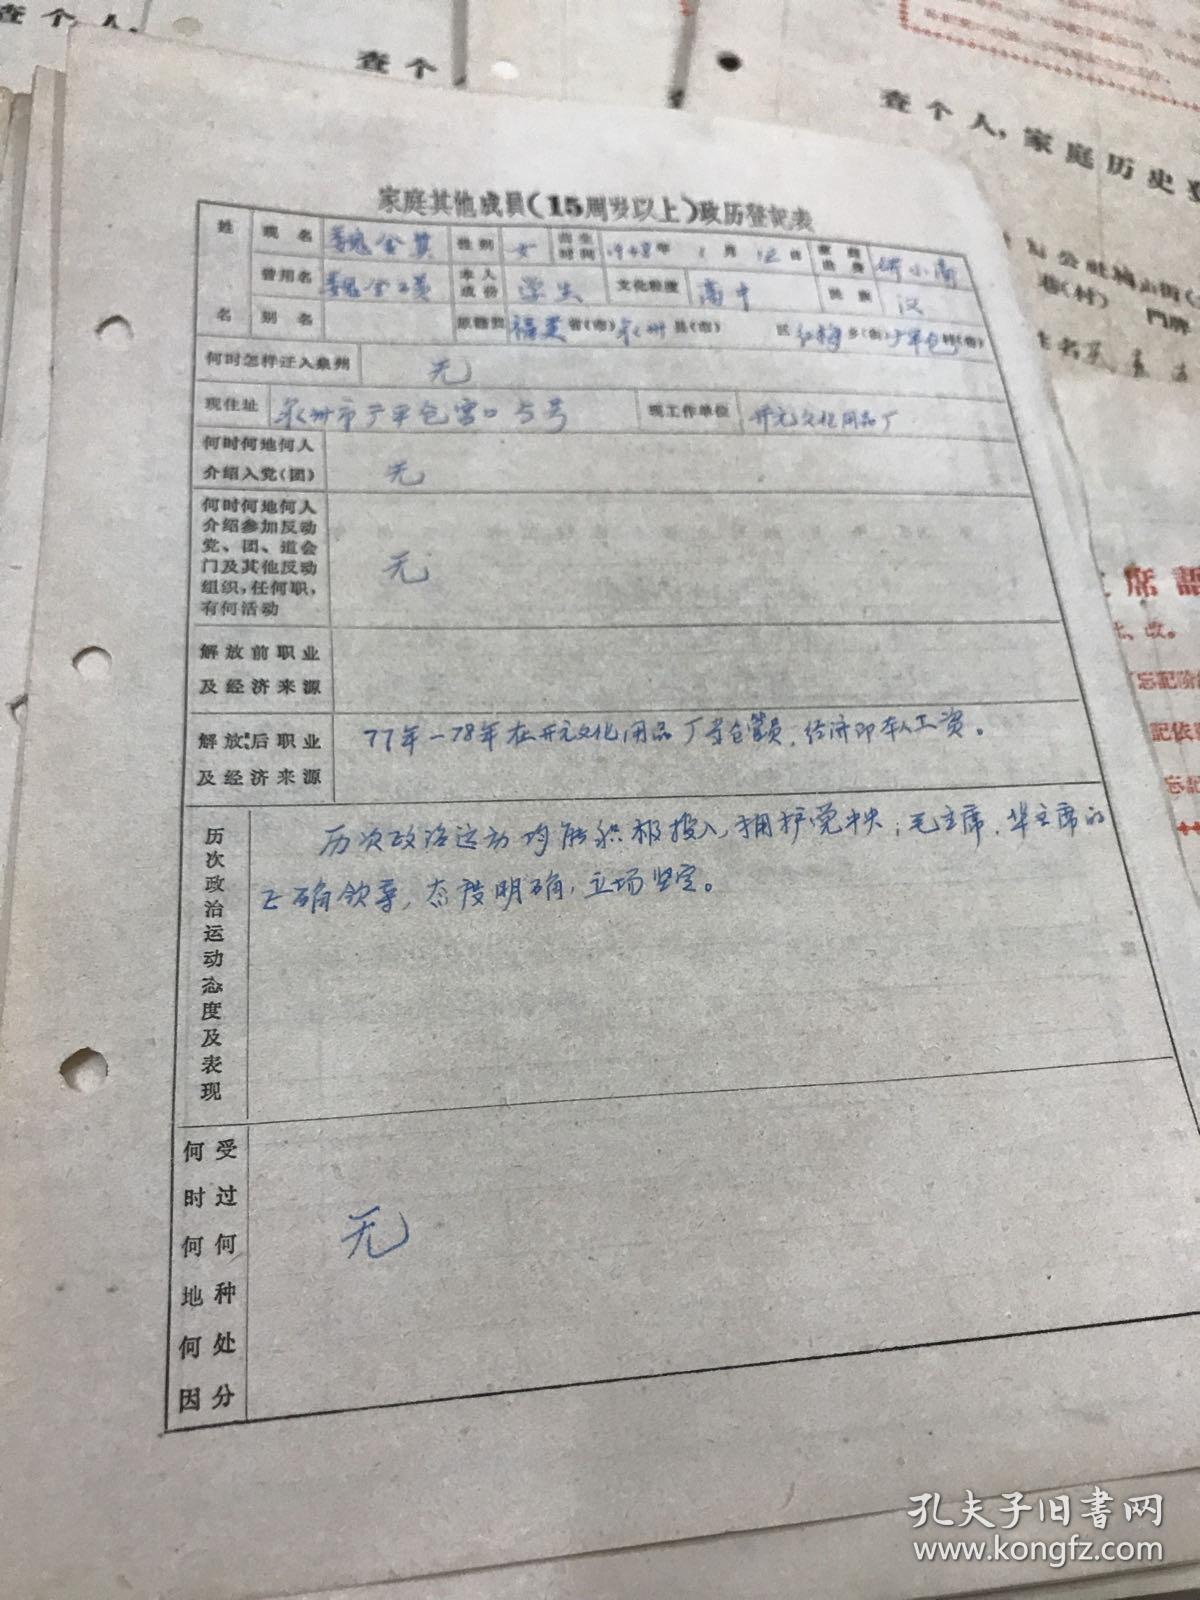 查个人,
查个
查个人,家庭历史
家庭其他成员(15周岁以上)政历登记表
姓 现名 魏金英 性别 女 出生时间 1948年 1月 12日 家庭出身 小商
曾用名 魏金英 本人成份 学生 文化程度 高中 民族 汉
名 别名 原籍贯 福建省(市)泉州县(市) 区 红梅乡(街)
何时怎样迁入泉州 无
现住址 泉州市 宫口5号 现工作单位 开元文化用品厂
何时何地何人
介绍入党(团) 无
何时何地何人
介绍参加反动
党、团、道会
门及其他反动 无
组织,任何职,
有何活动
解放前职业
及经济来源
解放后职业 77年-78年在开元文化用品厂 仓管员,经济即本人工资。
及经济来源
历次政治运动态度及表现
历次政治运动均能积极投入,拥护党中央;毛主席、华主席的
正确领导,态度明确,立场坚定。
何时何地何因
受过何种处分
无
公社梅山街(
巷(村) 门牌
生名
席语
、改。
忘记阶
记依
忘记
孔夫子旧书网
www.kongfz.com